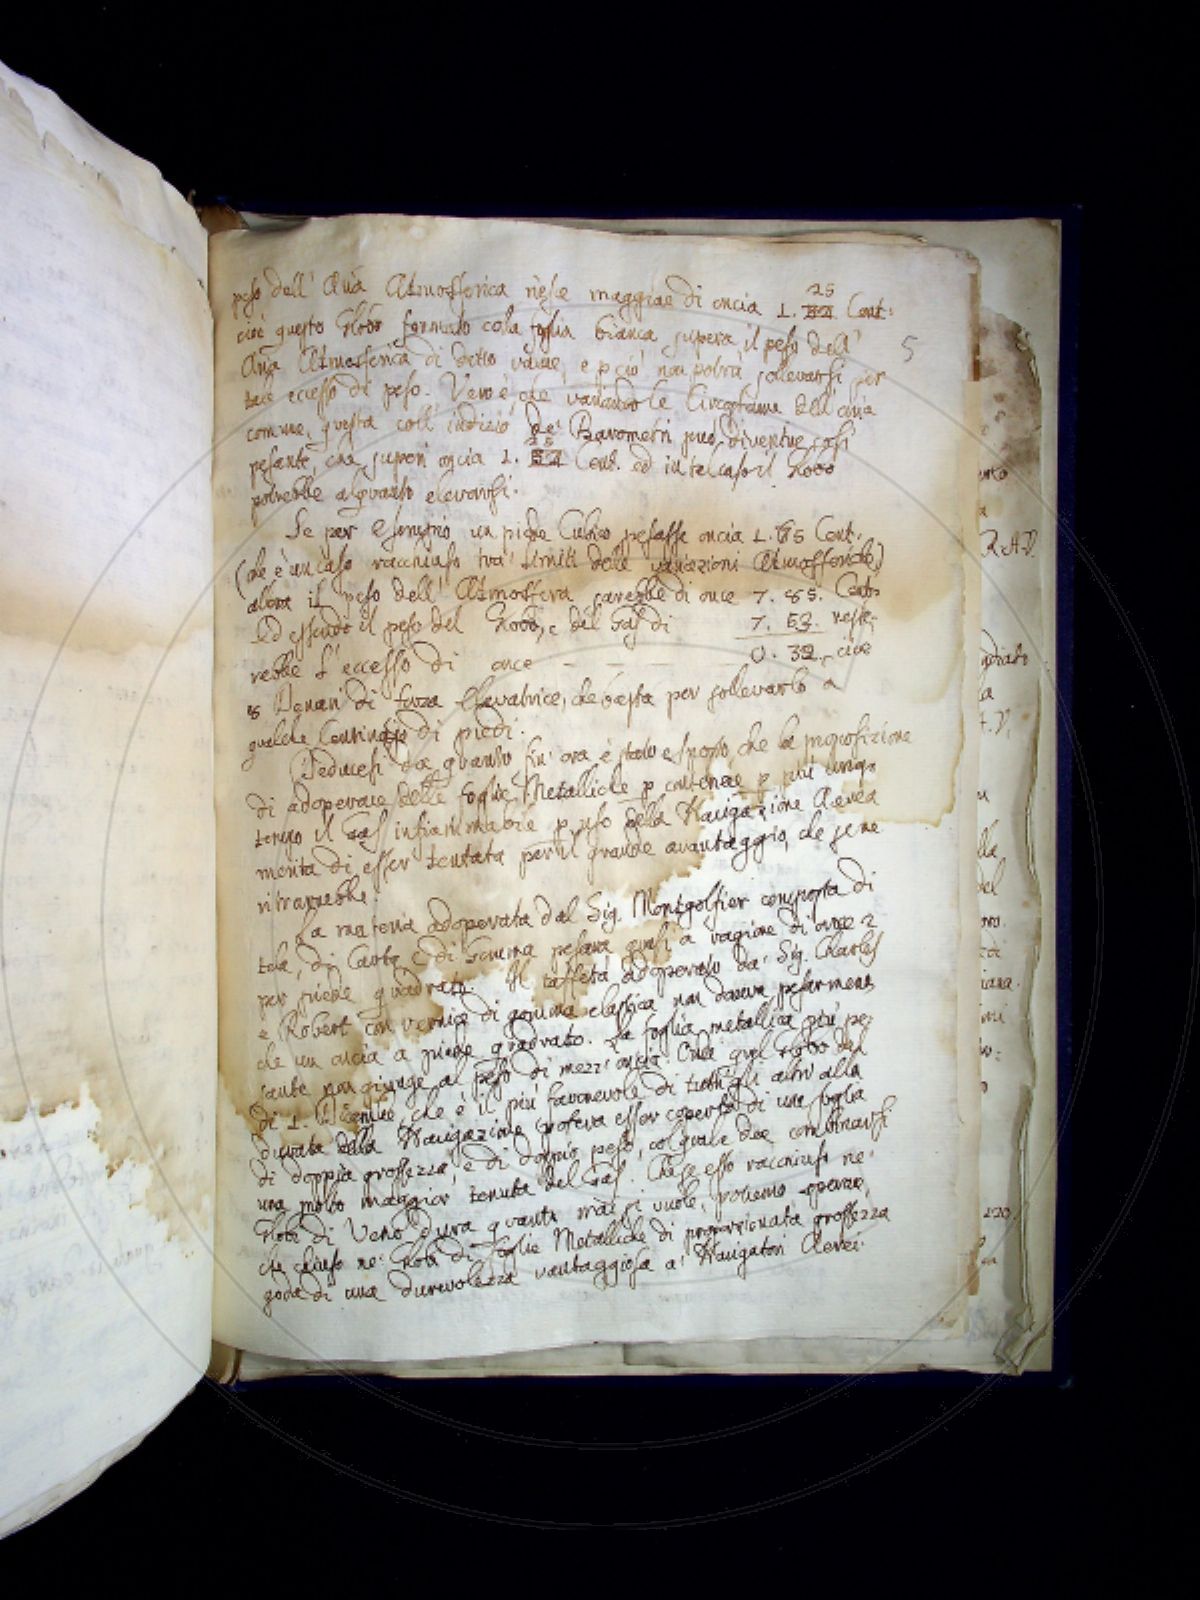 peso dell' Aria Atmosferica riesce maggiore di oncia 1. 25 Cent:
cioè questo Globo formato cola foglia bianca supera il peso dell'
5
Aria Atmosferica di detto volume, e p ciò non potrà sollevarsi per
tale eccesso di peso. Vero è, che variando le Circostanze dell' aria
comune, questa coll' indizio de' Barometri può divenire così
pesante, che superi oncia 1. 25 Cent. ed in tal caso il Globo
potrebbe alquanto elevarsi.
Se per Esempio un piede Cubico pesasse oncia 1. 85 Cent.
(che è un caso racchiuso tra' limiti delle variazioni Atmosferiche)
allora il peso dell' Atmosfera sarebbe di once 7. 85. Cent.
Ed essendo il peso del Globo, e del Gas di 7. 53. reste-
rebbe l' eccesso di once – – – 0. 32, cioè
8 Denari di forza Elevatrice, che basta per sollevarlo a
qualche Centinajo di piedi.
Deducesi da quanto fin' ora è stato esposto, che la proposizione
di adoperare delle foglie Metalliche p contenere p più lungo
tempo il Gas infiammabile p uso della Navigazione Aerea
merita di esser tentata per il grande avantaggio, che se ne
ritrarrebbe.
La materia adoperata dal Sig. Montgolfier composta di
tela, di Carta, e di Gomma pesava quasi a ragione di once 2
per piede quadrato. Il taffetà adoperato da' Sig. Charles
e Robert con vernice di gomma elastica non doveva pesar meno
che un oncia a piede quadrato. La foglia metallica più pe-
sante non giunge al peso di mezz' oncia. Onde quel Globo del
di 1. che è il più favorevole di tutti gli altri alla
durata della Navigazione poteva esser coperto di una foglia
di doppia grossezza, e di doppio peso, col quale dee combinarsi
una molto maggior tenuta del Gas. Che se esso racchiuso ne'
Globi di Vetro dura quanto mai si vuole, potremo sperare,
che chiuso ne' Globi di Foglie Metalliche di proporzionata grossezza
goda di una durevolezza vantaggiosa a' Navigatori Aerei.